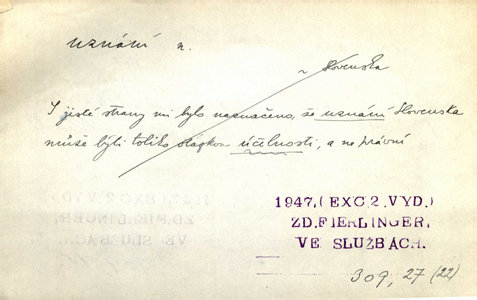 uznání n.
~ Slovenska
S jisté strany mi bylo naznačeno, že uznání Slovenska
může býti toliko otázkou účelnosti, a ne právní
1947, (EXC 2. VYD.)
ZD. FIERLINGER,
VE SLUŽBÁCH.
309, 27 (22)